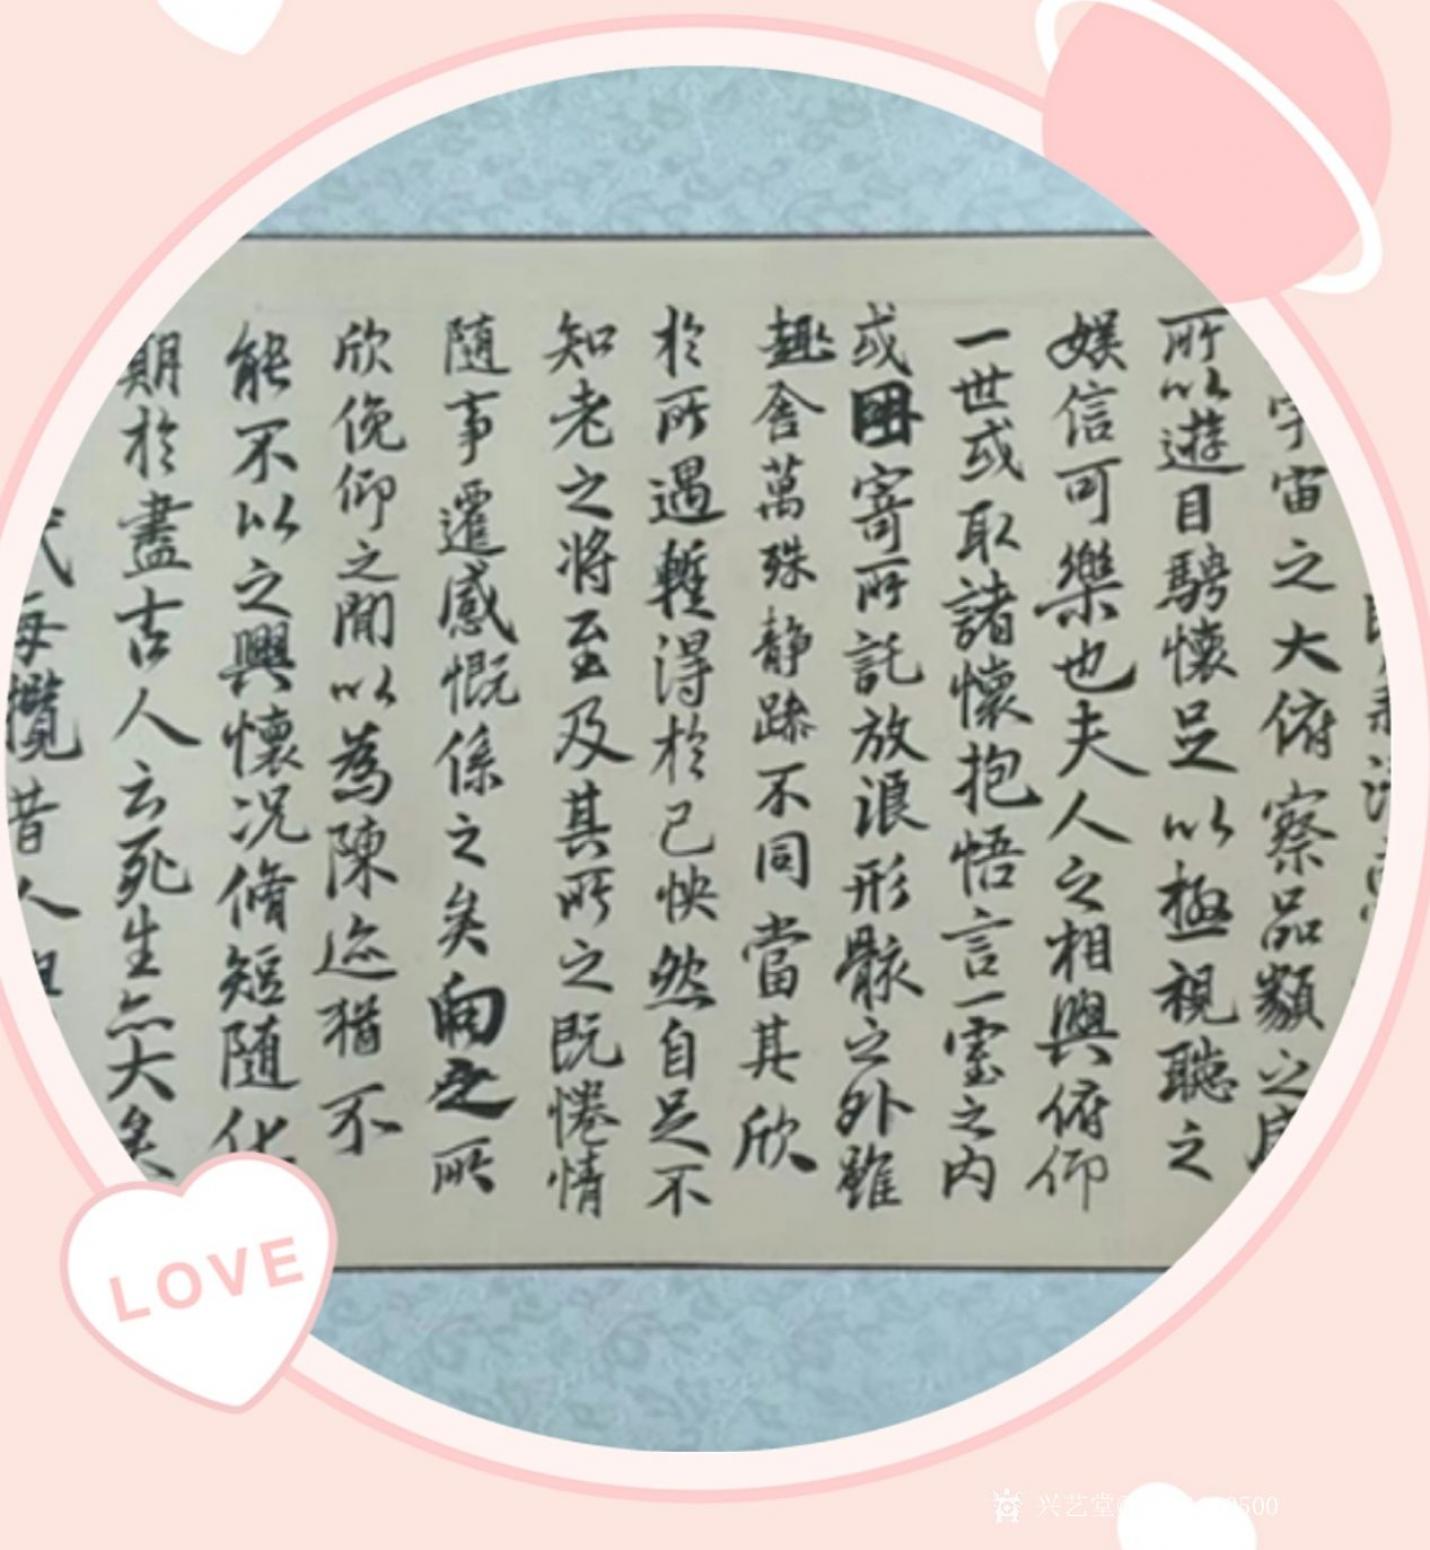 宇宙之大俯察品類之
所以遊目騁懷足以極視聽之
娛信可樂也夫人之相與俯仰
一世或取諸懷抱悟言一室之內
或因寄所託放浪形骸之外雖
趣舍萬殊靜躁不同當其欣
於所遇暫得於己怏然自足不
知老之將至及其所之既惓情
隨事遷感慨係之矣向之所
欣俛仰之閒以為陳迹猶不
能不以之興懷況脩短隨化
期於盡古人云死生亦大矣
每攬昔人
LOVE
兴艺堂
500